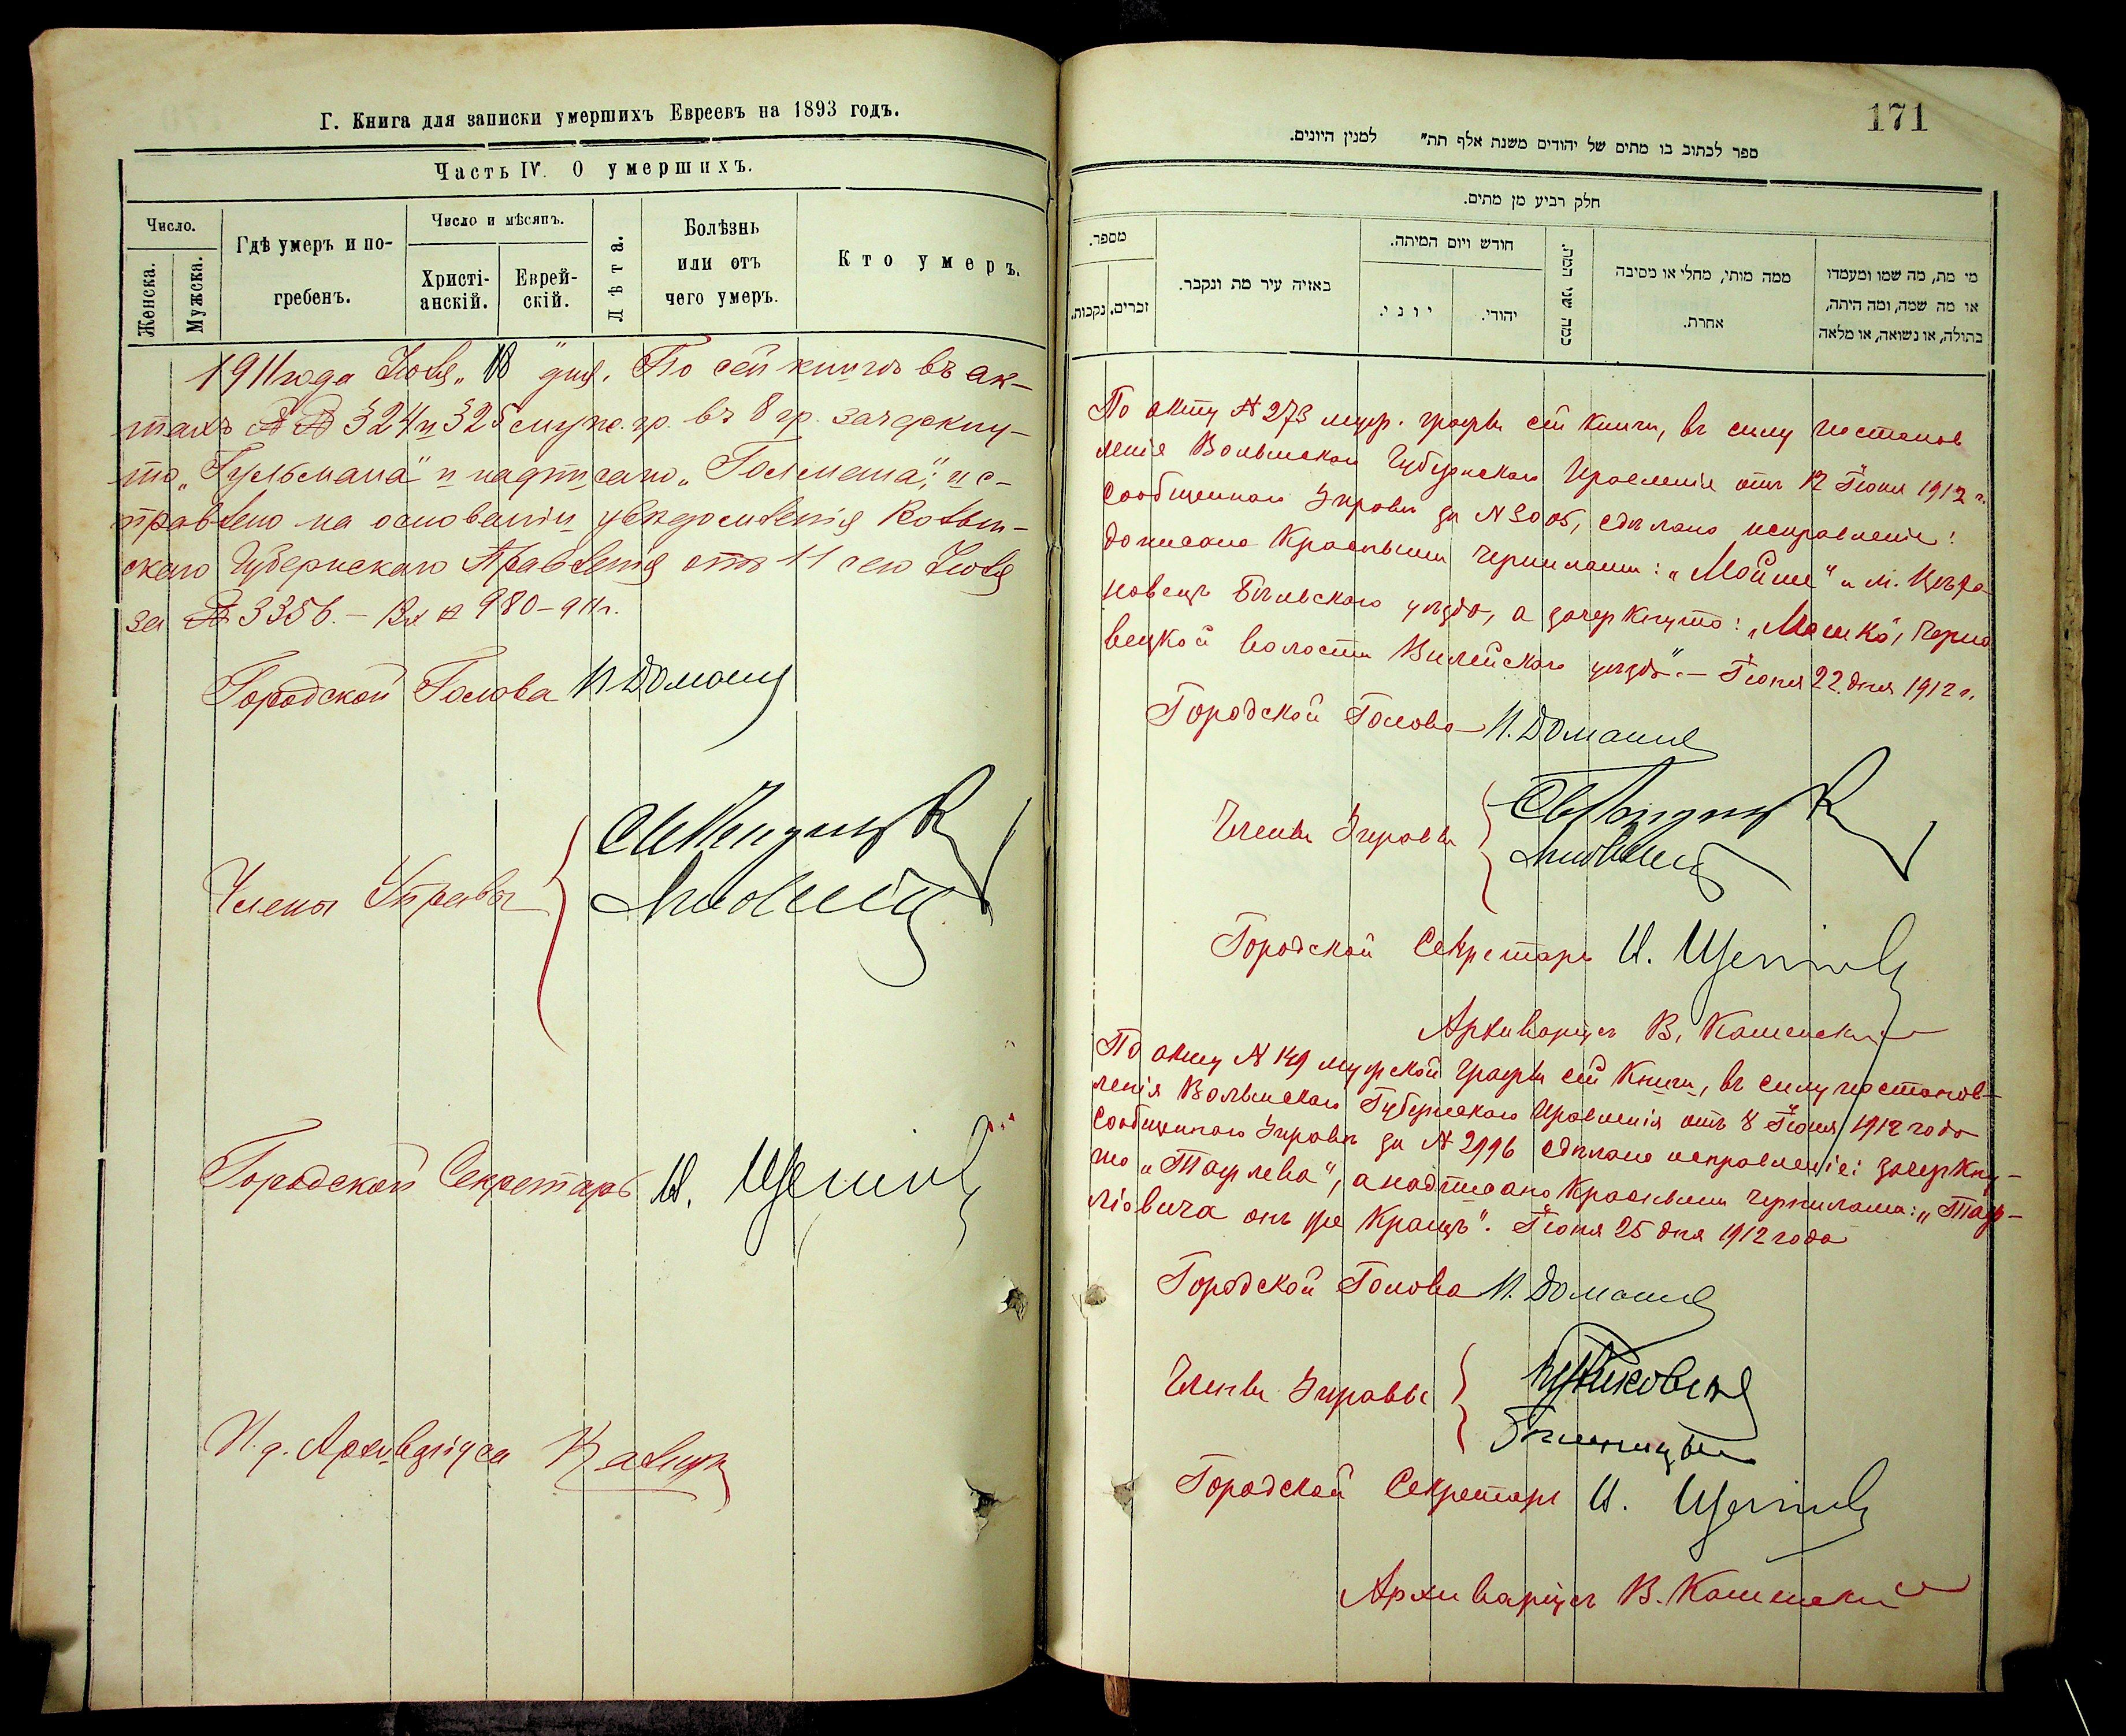 Г. Книга для записки умершихъ Евреевъ на 1893 годъ.
Часть IV. О умершихъ.
Число.
Женска.
Мужска.
Гдѣ умеръ и по-
гребенъ.
Число и мѣсяцъ.
Христі-
анскій.
Еврей-
скій.
Лѣта.
Болѣзнь
или отъ
чего умеръ.
Кто умеръ.
1911 года Іюля „18" дня. По сей книгѣ въ ак-
тахъ №№ 324 и 325 муж. гр. въ 8 гр. зачеркну-
то „Гульмана" и надписано „Голмана"; ис-
правлено на основаніи увѣдомленія Волын-
скаго Губернскаго Правленія отъ 11 сего Іюля
за № 3356. – Вх № 980–911 г.
Городской Голова И. Домани
Члены Управы
Городской Секретарь И.
И. д. Архиваріуса
171
ספר לכתוב בו מתים של יהודים משנת אלף תת״ למנין היונים.
חלק רביע מן מתים.
מספר.
נקבות.
זכרים.
באיזה עיר מת ונקבר.
חודש ויום המיתה.
יוני.
יהודי.
כמה שני המת.
ממה מותי, מחלי או מסיבה
אחרת.
מי מת, מה שמו ומעמדו
או מה שמה, ומה היתה,
בתולה, או נשואה, או מלאה
По акту № 273 муж. графы сей книги, въ силу постанов
ленія Волынскаго Губернскаго Правленія отъ 12 Іюня 1912 г.
сообщеннаго Управѣ за № 3005, сдѣлано исправленіе:
дописано красными чернилами: „Мойше" и м.
Бѣльскаго уѣзда, а зачеркнуто: „Мошко",
вецкой волости Вилейскаго уѣзда". – Іюня 22 дня 1912 г.
Городской Голова И. Домани
Члены Управы
Городской Секретарь И.
Архиваріусъ В. Каменскій
По акту № 149 мужской графы сей книги, въ силу постанов-
ленія Волынскаго Губернскаго Правленія отъ 8 Іюня 1912 года
сообщеннаго Управѣ за № 2996 сдѣлано исправленіе: зачеркну-
то „", а надписано красными чернилами: „
онъ же Кранцъ". Іюня 25 дня 1912 года
Городской Голова И. Домани
Члены Управы
Городской Секретарь И.
Архиваріусъ В. Каменскій